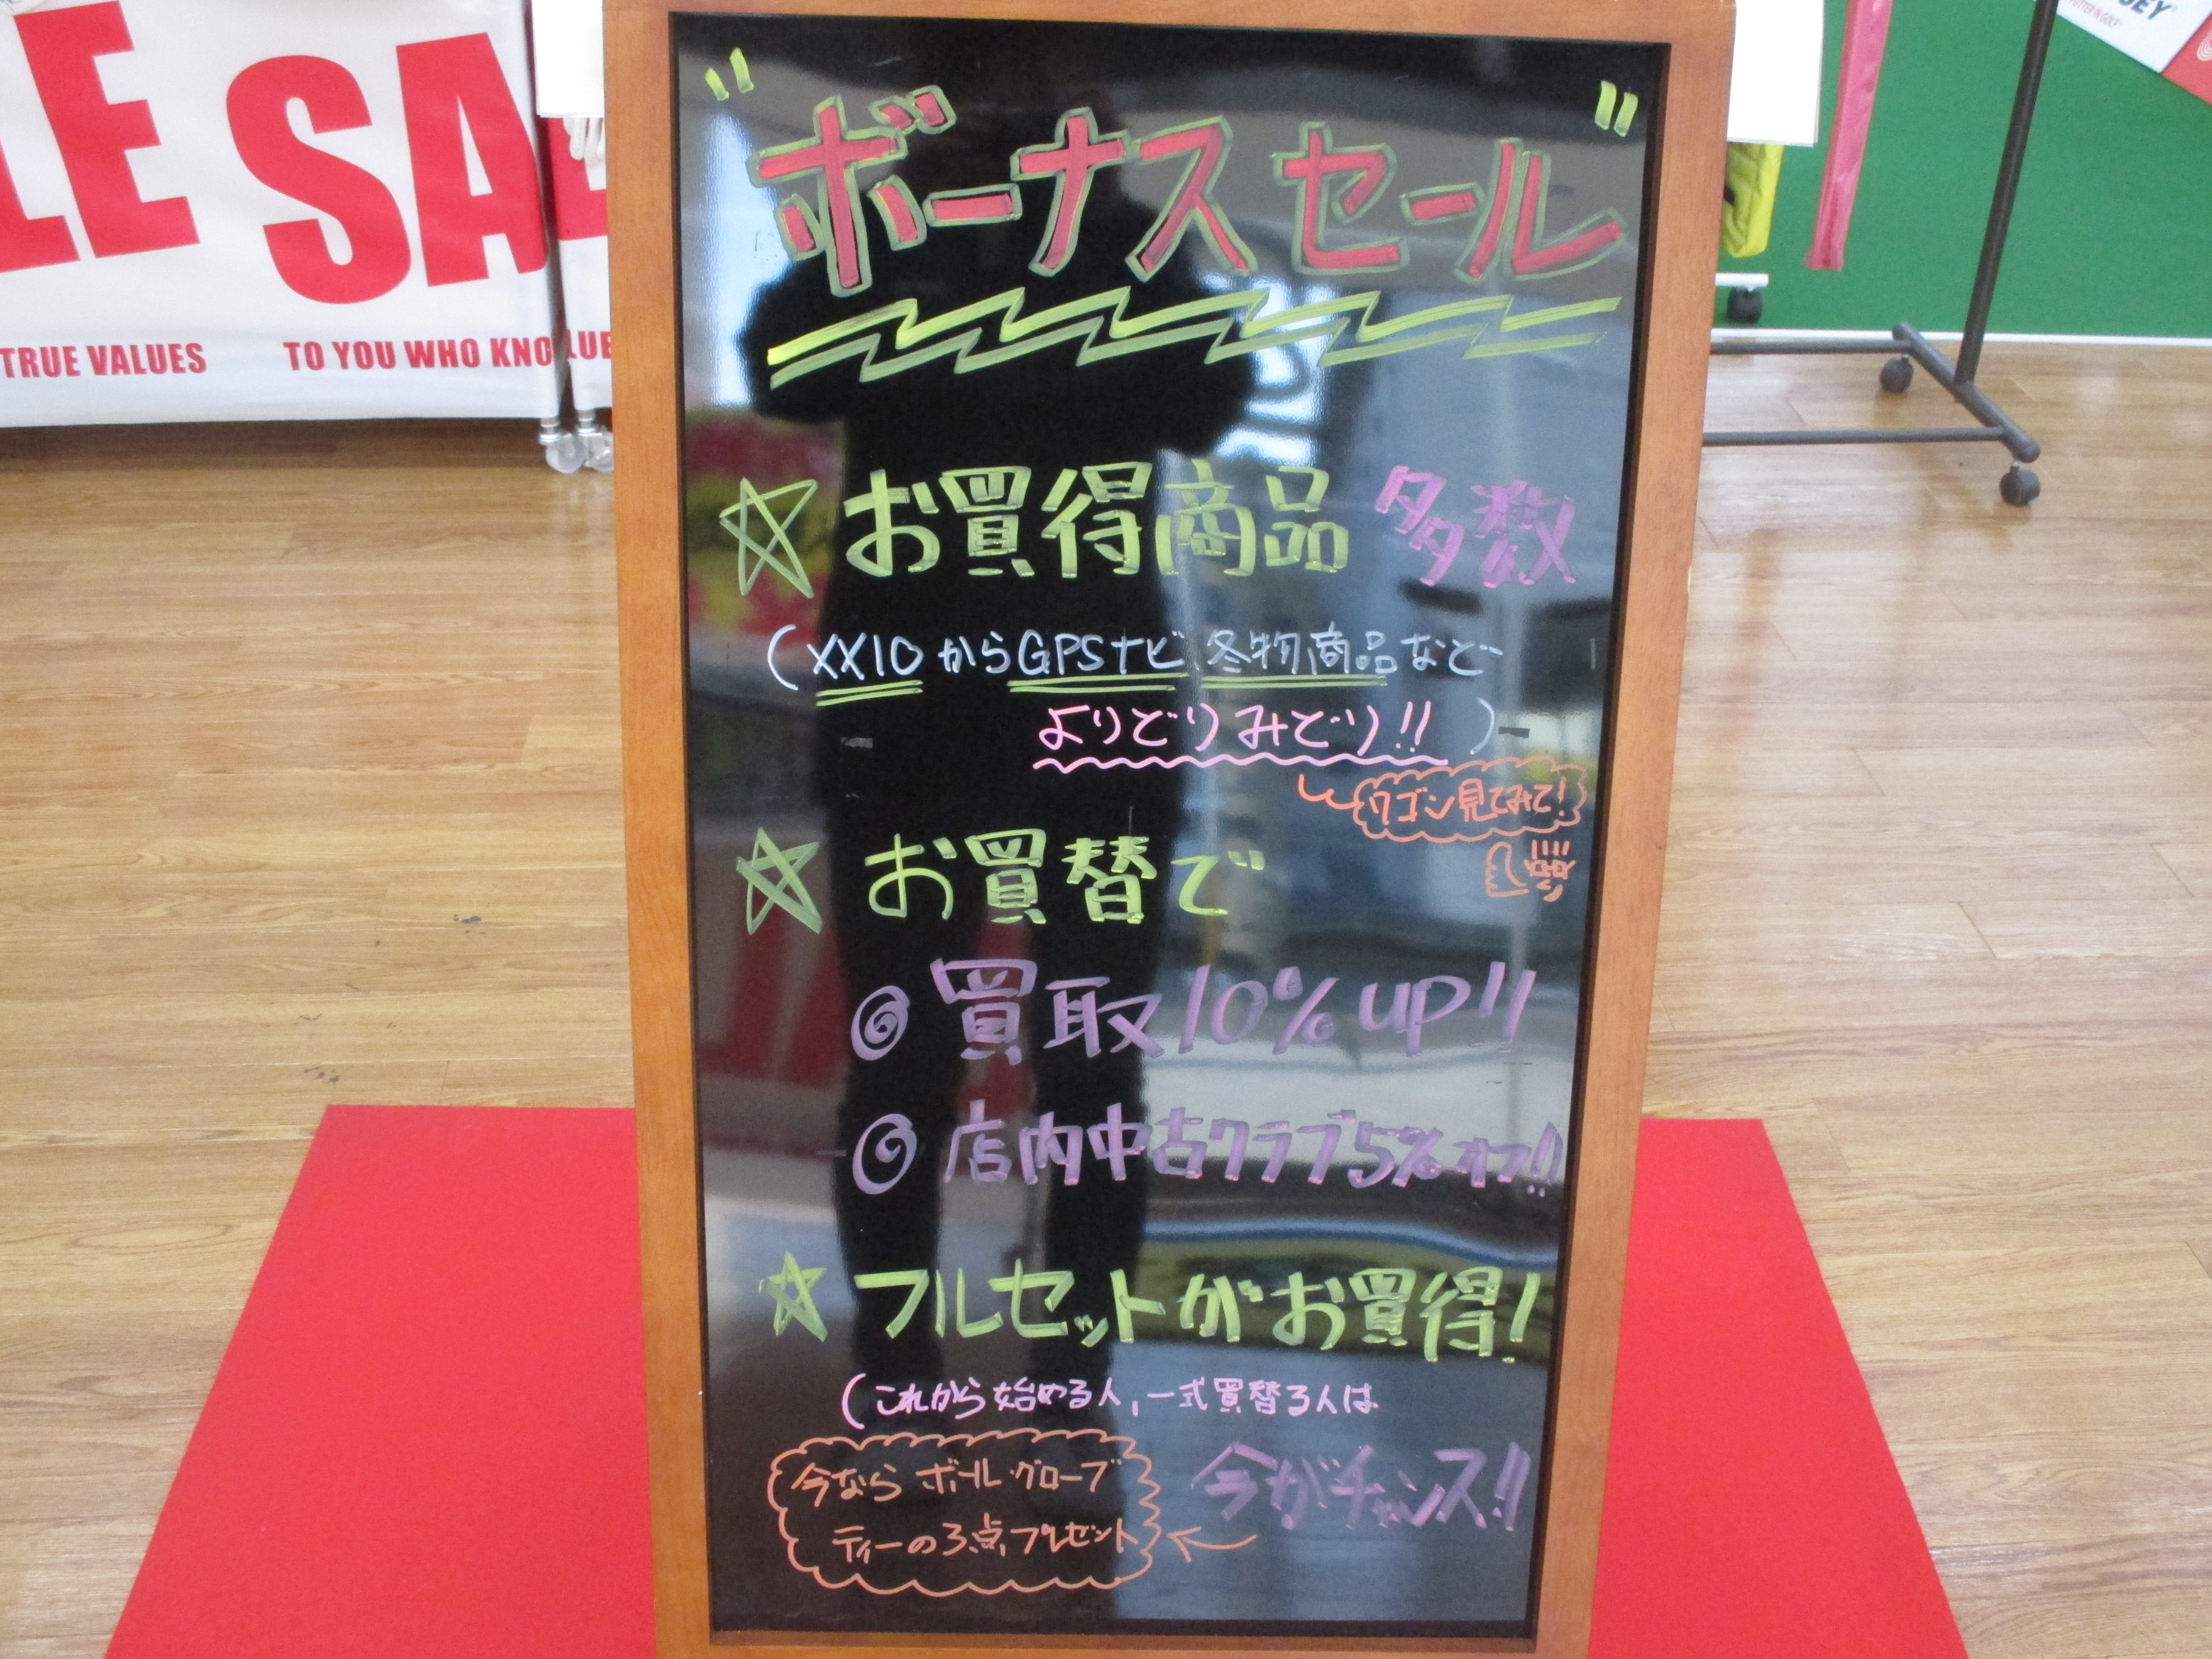 LE SA
TRUE VALUES TO YOU WHO KNO LUE
PUTTER IN GOLF
"ボーナスセール"
☆お買得商品 多数
(XXIOからGPSナビ 冬物商品など
よりどりみどり!!)
ワゴン見てみて!
☆お買替で
◎買取10%up!!
◎店内中古クラブ5%オフ!!
☆フルセットがお買得!
(これから始める人,一式買替る人は
今がチャンス!!
今なら ボール・グローブ
ティーの3点プレゼント